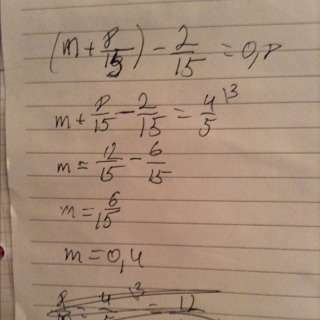 (m + 8/15) - 2/15 = 0,8
m + 8/15 - 2/15 = 4/5 \3
m = 12/15 - 6/15
m = 6/15
m = 0,4